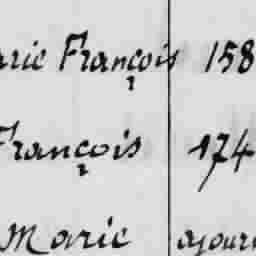 arie François 158
François 174
Marie ajour